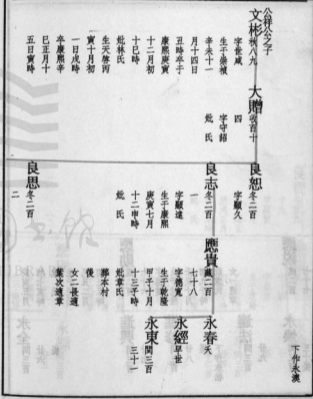 公祥公之子
文彬 秋八九
字世咸
生于崇禎
辛未十一
月十四日
丑時卒于
康熙庚寅
十二月初
十巳時
妣林氏
生天啓丙
寅十月初
一日戌時
卒康熙辛
巳正月十
五日寅時
大贈 收百十
四
字守錯
妣 氏
良恕 冬二百
字顯久
良志 冬二百
一
字顯達
生于康熙
庚寅七月
十二申時
妣 氏
良思 冬二百
二
應貴 藏二百
七十八
字德寬
生于乾隆
甲子十月
十三子時
妣章氏
葬本村
後
女二長適
葉次適章
永春 夭
永經 早世
永東 閏三百
三十一
下作永漠